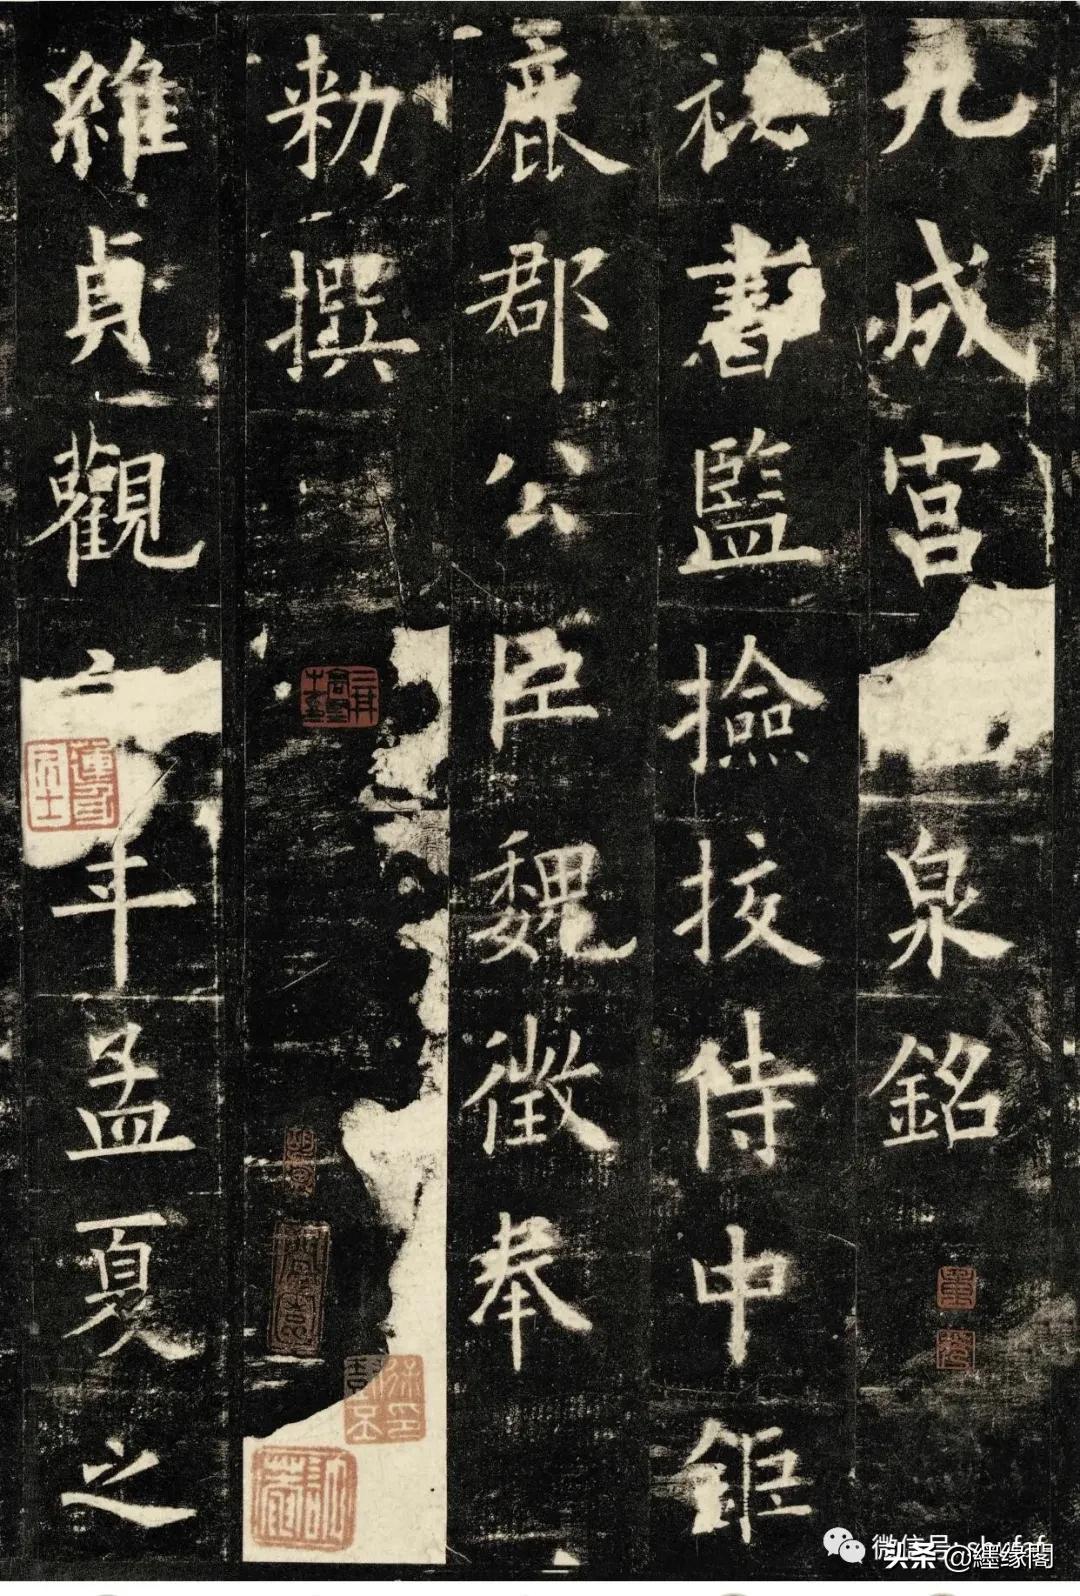 九成宮泉銘
祕書監撿挍侍中鉅
鹿郡公臣魏徵奉
勑撰
維貞觀六年孟夏之
微信号
头条 @纏缘阁